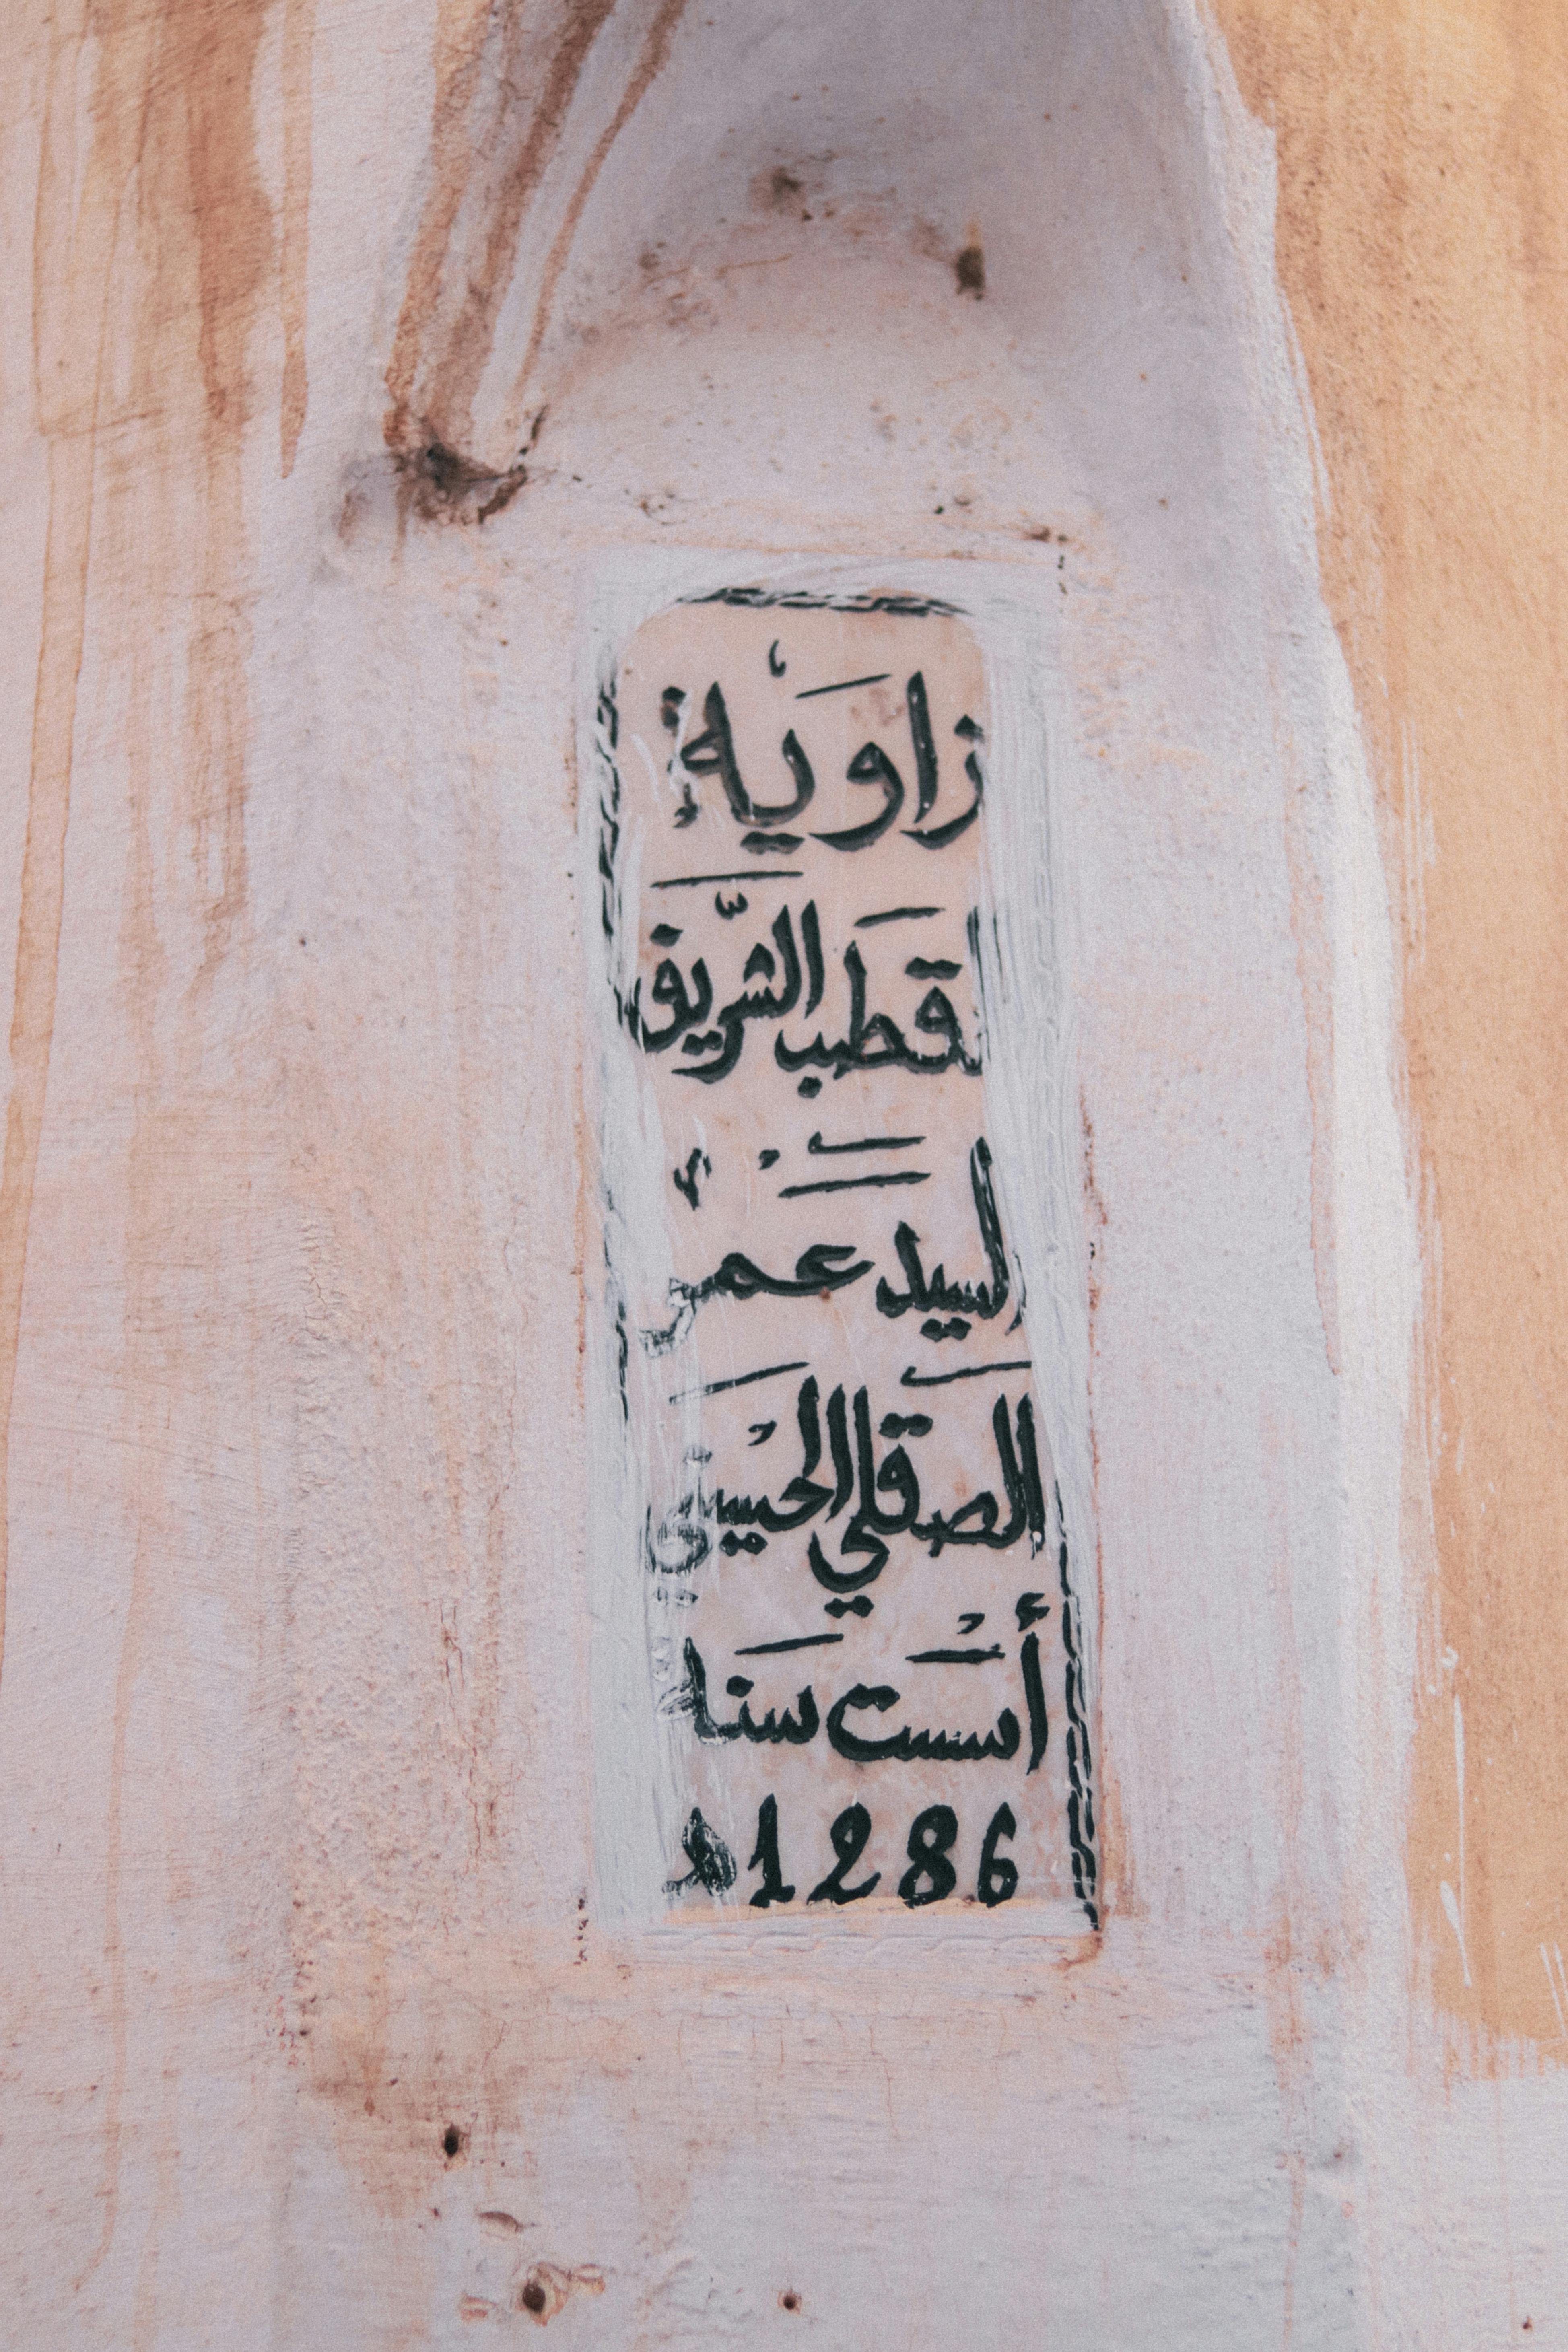 زاوية
لقطب الشريف
السيد عمر
الصقلي الحسيني
أسست سنة
1286 ه